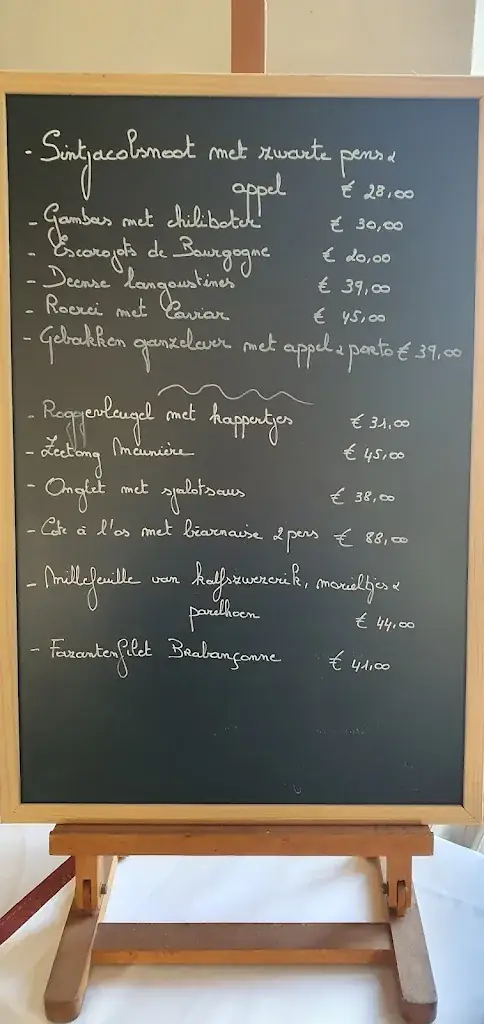 - Sintjacobsnoot met zwarte pens &
appel € 28,00
- Gambas met chiliboter € 30,00
- Escargots de Bourgogne € 20,00
- Deense langoustines € 39,00
- Roerei met Caviar € 45,00
- Gebakken ganzelever met appel & porto € 39,00
- Roggevleugel met kappertjes € 31,00
- Zeetong Meunière € 45,00
- Onglet met sjalotsaus € 38,00
- Cote à l'os met béarnaise 2 pers € 88,00
- Millefeuille van kalfszwezerik, morieltjes &
parelhoen € 44,00
- Fazantenfilet Brabançonne € 41,00